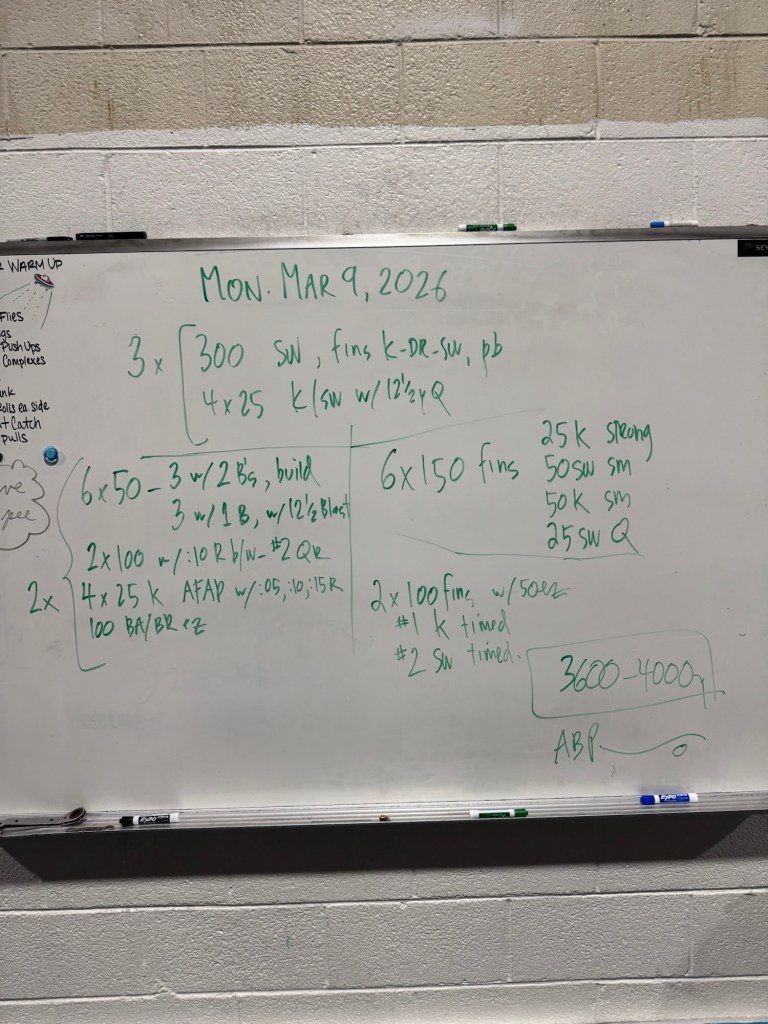 WARM UP
Flies
Push Ups
Complexes
ea. side
Catch
pulls
MON. MAR 9, 2026
3 x 300 SW, fins K-DR-SW, pb
4 x 25 K/SW w/ 12 1/2 y Q
2x
6 x 50 - 3 w/ 2 B's, build
3 w/ 1 B, w/ 12 1/2 Blast
2 x 100 w/ :10 R b/w - #2 QR
4 x 25 K AFAP w/ :05, :10, :15 R
100 BA/BR ez
6 x 150 fins
25 K strong
50 SW sm
50 K sm
25 SW Q
2 x 100 fins w/ 50 ez
#1 K timed
#2 SW timed.
3600-4000y
ABP
EXPO
EXPO